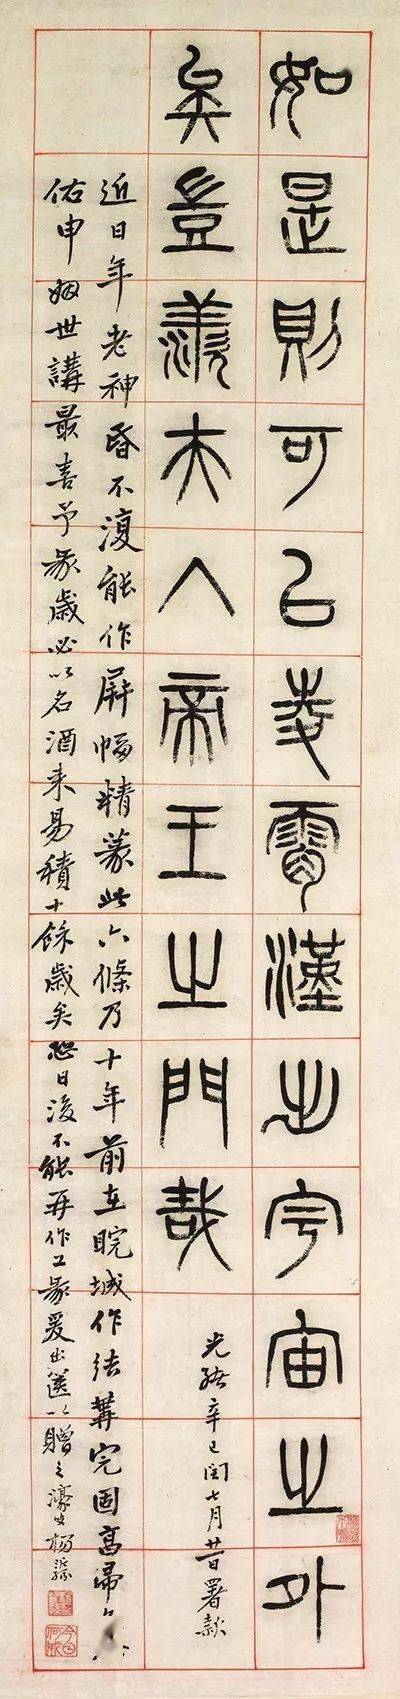 如是則可㠯夌霄漢出宇宙之外
矣豈羨夫入帝王之門哉
光緒辛巳閏七月廿日署款
近日年老神昏不復能作屏幅精篆此六條乃十年前在皖城作結構完固高
佑申姻世講最喜予篆歲必以名酒來易積十餘歲矣恐日後不能再作工篆爰出篋以贈之濠叟楊沂孫